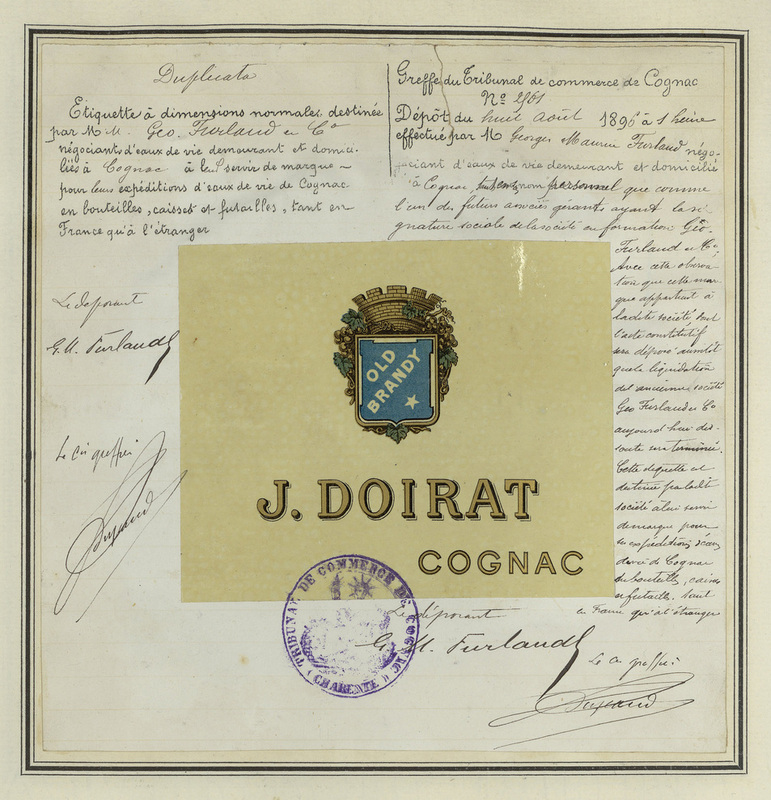 Duplicata
Etiquette à dimensions normales, destinée
par M M. Geo. Furlaud et Cº
négociants d'eaux de vie demeurant et domici-
liés à Cognac à leur servir de marque
pour leurs expéditions d'eaux de vie de Cognac
en bouteilles, caisses et futailles, tant en
France qu'à l'étranger
Le déposant
G. M. Furlaud
Le Cis greffier
Greffe du Tribunal de commerce de Cognac
Nº 2961
Dépôt du huit Août 1896 à 1 heure
effectué par M Georges Maurice Furlaud négo-
ciant d'eaux de vie demeurant et domicilié
à Cognac, tant en son nom personnel que comme
l'un des futurs associés gérants ayant la si-
gnature sociale de la société en formation Geo.
Furlaud et Cº,
Avec cette observa-
tion que cette mar-
que appartient à
ladite société dont
l'acte constitutif
sera déposé aussitôt
que la liquidation
de l'ancienne société
Geo Furlaud et Cº
aujourd'hui dis-
soute sera terminée.
Cette étiquette est
destinée par ladite
société à lui servir
de marque pour
ses expéditions d'eaux
de vie de Cognac
en bouteilles, caisses
et futailles, tant
en France qu'à l'étranger
OLD
BRANDY
J. DOIRAT
COGNAC
TRIBUNAL DE COMMERCE DE COGNAC
(CHARENTE)
Le déposant
G. M. Furlaud
Le Cis greffier